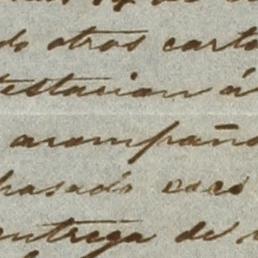 do otros carto
testacion á
acompaño
pasado
entrega de